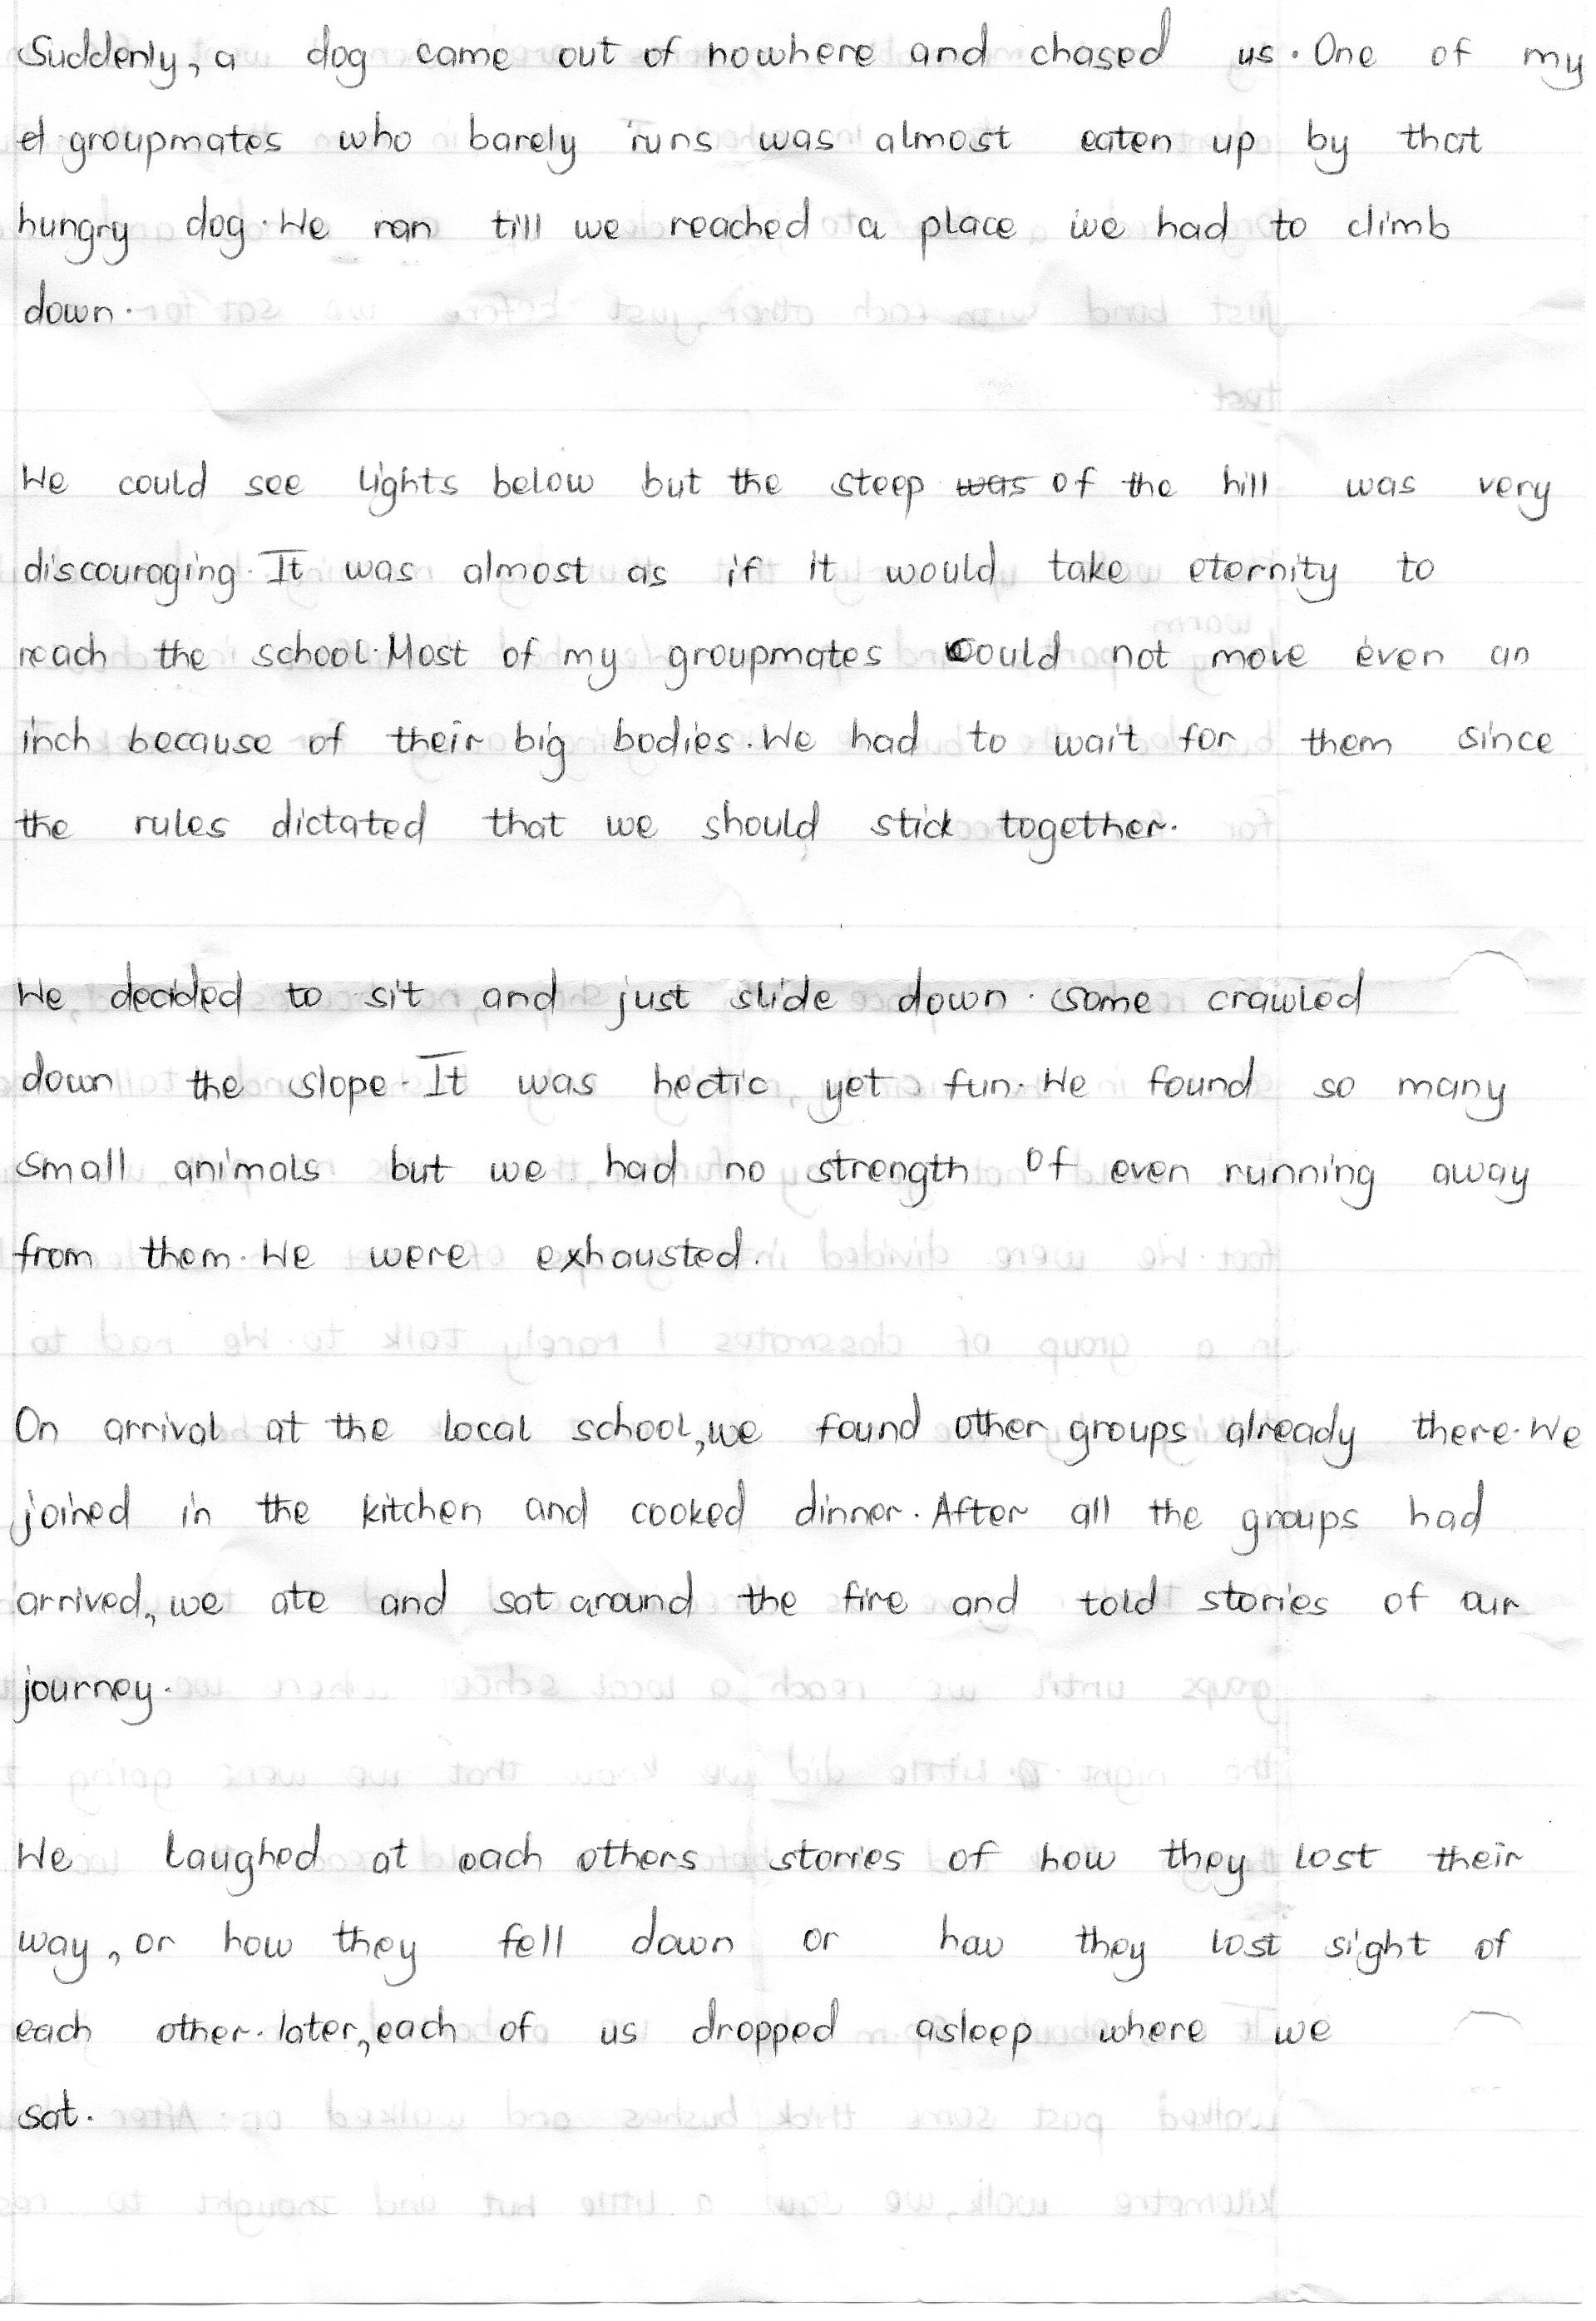 Suddenly, a dog came out of nowhere and chased us. One of my
groupmates who barely runs was almost eaten up by that
hungry dog. We ran till we reached a place we had to climb
down.
We could see lights below but the steep was of the hill was very
discouraging. It was almost as if it would take eternity to
reach the school. Most of my groupmates could not move even an
inch because of their big bodies. We had to wait for them since
the rules dictated that we should stick together.
We decided to sit and just slide down. Some crawled
down the slope. It was hectic, yet fun. We found so many
small animals but we had no strength of even running away
from them. We were exhausted.
On arrival at the local school, we found other groups already there. We
joined in the kitchen and cooked dinner. After all the groups had
arrived, we ate and sat around the fire and told stories of our
journey.
We laughed at each others stories of how they lost their
way, or how they fell down or how they lost sight of
each other. later, each of us dropped asleep where we
sat.